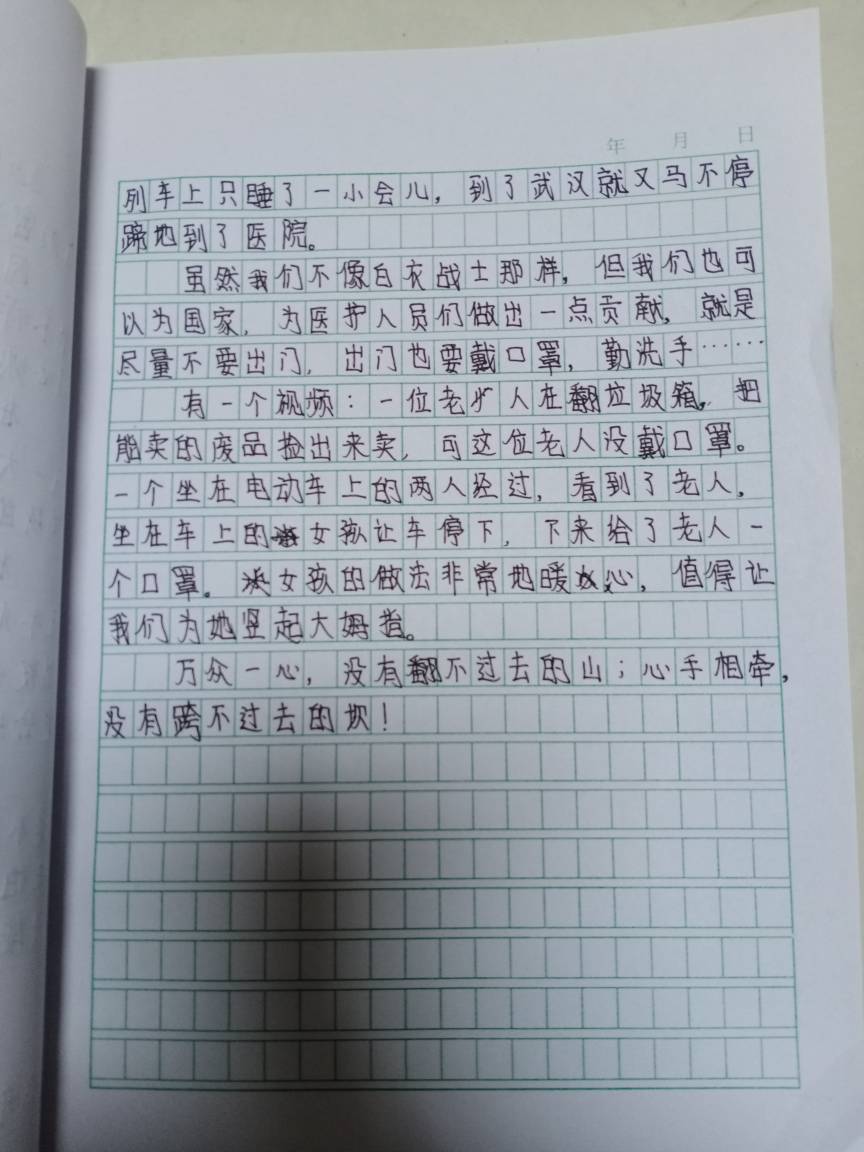 年 月 日
列车上只睡了一小会儿，到了武汉就又马不停
蹄地到了医院。
虽然我们不像白衣战士那样，但我们也可
以为国家，为医护人员们做出一点贡献，就是
尽量不要出门，出门也要戴口罩，勤洗手……
有一个视频：一位老人在翻垃圾箱，把
能卖的废品捡出来卖，可这位老人没戴口罩。
一个坐在电动车上的两人经过，看到了老人，
坐在车上的女孩让车停下，下来给了老人一
个口罩。女孩的做法非常地暖心，值得让
我们为她竖起大姆指。
万众一心，没有翻不过去的山；心手相牵，
没有跨不过去的坎！